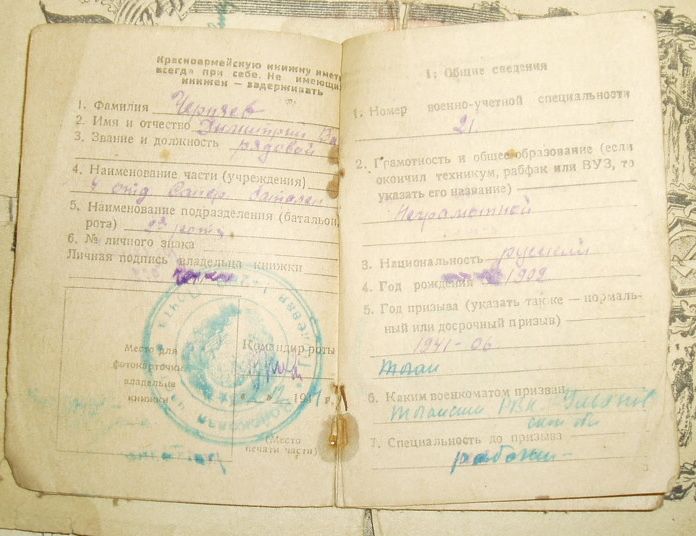 Красноармейскую книжку иметь
всегда при себе. Не имеющих
книжек — задерживать
1. Фамилия Черняев
2. Имя и отчество
3. Звание и должность рядовой
4. Наименование части (учреждения)
4 отд Сапер. батальон
5. Наименование подразделения (батальон,
рота)
6. № личного знака
Личная подпись владельца книжки
Место для
фотокарточки
владельца
книжки
Командир роты
(Место
печати части)
I. Общие сведения
1. Номер военно-учетной специальности
21
2. Грамотность и общее образование (если
окончил техникум, рабфак или ВУЗ, то
указать его название)
Неграмотный
3. Национальность русский
4. Год рождения 1902
5. Год призыва (указать также — нормаль-
ный или досрочный призыв)
1941-06
6. Каким военкоматом призван
РВК
7. Специальность до призыва
рабочий